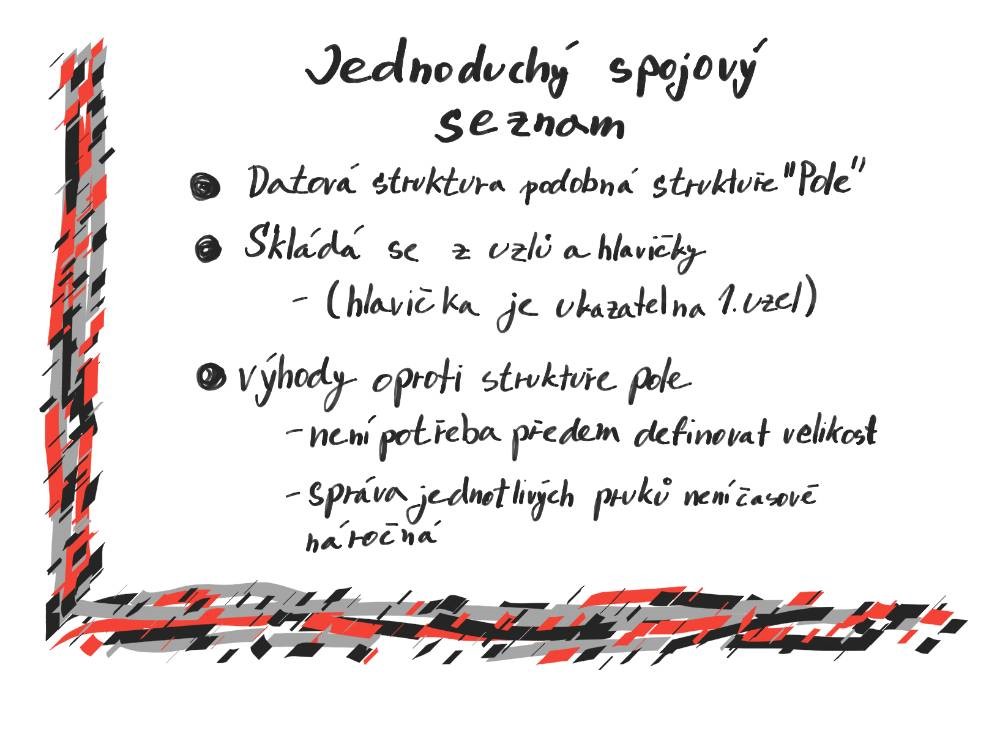 Jednoduchý spojový
seznam
Datová struktura podobná struktuře "Pole"
Skládá se z uzlů a hlavičky
- (hlavička je ukazatel na 1. uzel)
výhody oproti struktuře pole
- není potřeba předem definovat velikost
- správa jednotlivých prvků není časově
náročná